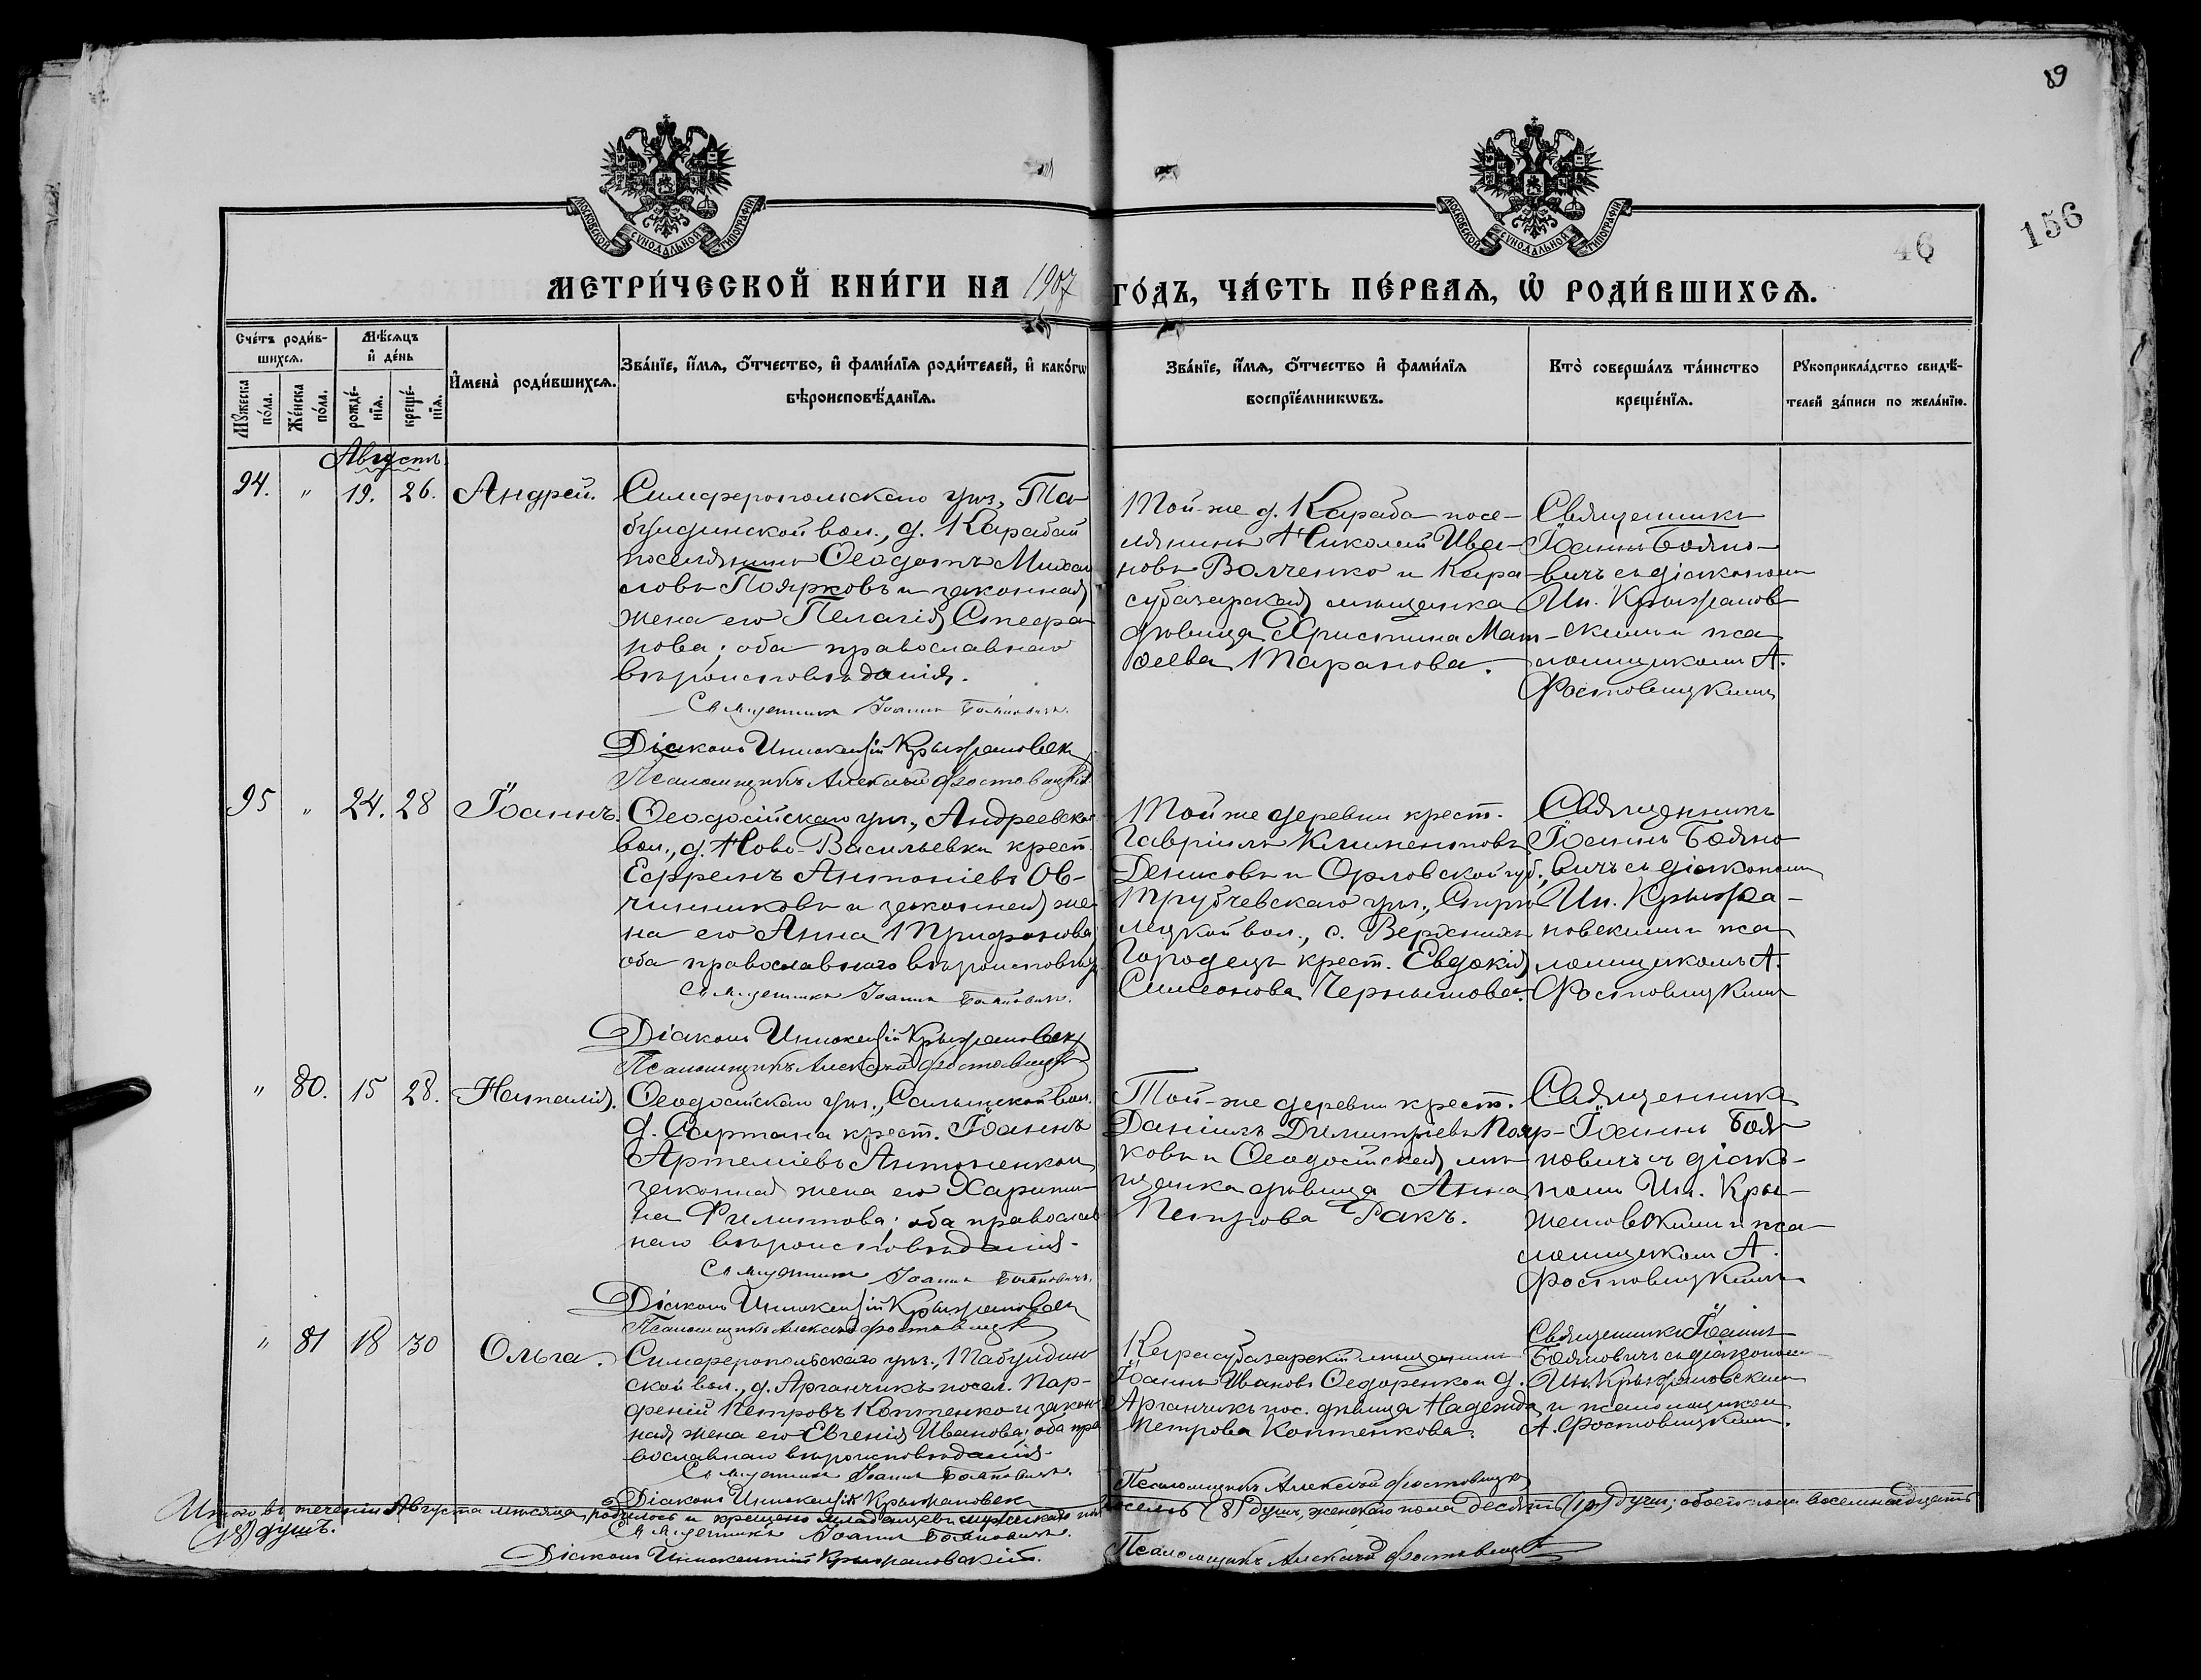 89
156
46
МОСКОВСКОЙ СУНОДАЛЬНОЙ ТИПОГРАФІИ
МОСКОВСКОЙ СУНОДАЛЬНОЙ ТИПОГРАФІИ
МЕТРИ́ЧЕСКОЙ КНИ́ГИ НА 1907 ГО́ДЪ, ЧА́СТЬ ПЕ́РВАЯ, Ѡ РОДИ́ВШИХСЯ.
Сче́тъ роди́в-
шихся.
Мѣ́сяцъ
и де́нь
Мꙋ́жеска по́ла.
Же́нска по́ла.
рожде́нїя.
креще́нїя.
И҆мена̀ роди́вшихся.
Зва́нїе, и҆́мя, ѻ҆́тчество, и҆ фами́лїя роди́телей, и҆ како́гѡ
вѣроисповѣ́данїя.
Зва́нїе, и҆́мя, ѻ҆́тчество и҆ фами́лїя
воспрїе́мникѡвъ.
Кто̀ соверша́лъ та́инство
креще́нїя.
Рꙋкоприкла́дство свидѣ́-
телей за́писи по жела́нїю.
Августъ.
94. " 19. 26. Андрей.
Симферопольскаго уѣз., Та-
булдинской вол., д. Карабай
поселянинъ Ѳеодотъ Михаи
ловъ Поярковъ и законная
жена его Пелагія Стефа
нова; оба православнаго
вѣроисповѣданія.
Священникъ Іоаннъ Бояновичъ.
Діаконъ Иннокентій Крыжановск
Псаломщикъ Алексѣй Фростовицкій
Той-же д. Караба посе-
лянинъ Николай Ива-
новъ Волченко и Кара-
субазарская мѣщанка
дѣвица Христина Мат-
ѳеева Таранова.
Священникъ
Іоаннъ Бояно-
вичъ съ діакономъ
Ин. Крыжанов-
скимъ и пса
ломщикомъ А.
Фростовицкимъ
95 " 24. 28 Іоаннъ.
Ѳеодосійскаго уѣз., Андреевской
вол., д. Ново-Васильевки крест.
Ефремъ Антоніевъ Ов-
чинниковъ и законная же-
на его Анна Трифонова;
оба православнаго вѣроисповѣд.
Священникъ Іоаннъ Бояновичъ.
Діаконъ Иннокентій Крыжановск
Псаломщикъ Алексѣй Фростовицкій
Той же деревни крест.
Гавріилъ Климентовъ
Денисовъ и Орловской губ.,
Трубчевскаго уѣз.,
лецкой вол., с. Верхнихъ
Городецъ крест. Евдокія
Симеонова Чернышова.
Священникъ
Іоаннъ Бояно
вичъ съ діакономъ
Ин. Крыжа-
новскимъ и пса
ломщикомъ А.
Фростовицкимъ
" 80. 15 28. Наталія.
Ѳеодосійскаго уѣз., Салынской вол.
д. Сартана крест. Іоаннъ
Артеміевъ Антоненко и
законная жена его Харити-
на Филиппова; оба православ
наго вѣроисповѣданія.
Священникъ Іоаннъ Бояновичъ.
Діаконъ Иннокентій Крыжановск
Псаломщикъ Алексѣй Фростовицк
Той-же деревни крест.
Даніилъ Димитріевъ Пояр-
ковъ и Ѳеодосійская мѣ-
щанка дѣвица Анна
Петрова Ракъ.
Священникъ
Іоаннъ Боя
новичъ съ діако-
номъ Ин. Кры-
жановскимъ и пса-
ломщикомъ А.
Фростовицкимъ
" 81 18 30 Ольга.
Симферопольскаго уѣз., Табулдин
ской вол., д. Арганчикъ посел. Пар-
феній Петровъ Коптенко и закон
ная жена его Евгенія Иванова; оба пра
вославнаго вѣроисповѣданія.
Священникъ Іоаннъ Бояновичъ.
Діаконъ Иннокентій Крыжановск
Карасубазарскій мѣщанинъ
Іоаннъ Ивановъ Ѳедоренко и д.
Арганчикъ пос. дѣвица Надежда
Петрова Коптенкова.
Псаломщикъ Алексѣй Фростовицк
Священникъ Іоаннъ
Бояновичъ съ діакономъ
Ин. Крыжановскимъ
и псаломщикомъ
А. Фростовицкимъ.
Итого въ теченіи Августа мѣсяца, родилось и крещено младенцевъ мужскаго пола восемь (8) душъ, женскаго пола десять (10) душъ; обоего пола восемнадцать
(18) душъ.
Священникъ Іоаннъ Бояновичъ.
Діаконъ Иннокентій Крыжановскій.
Псаломщикъ Алексѣй Фростовицк